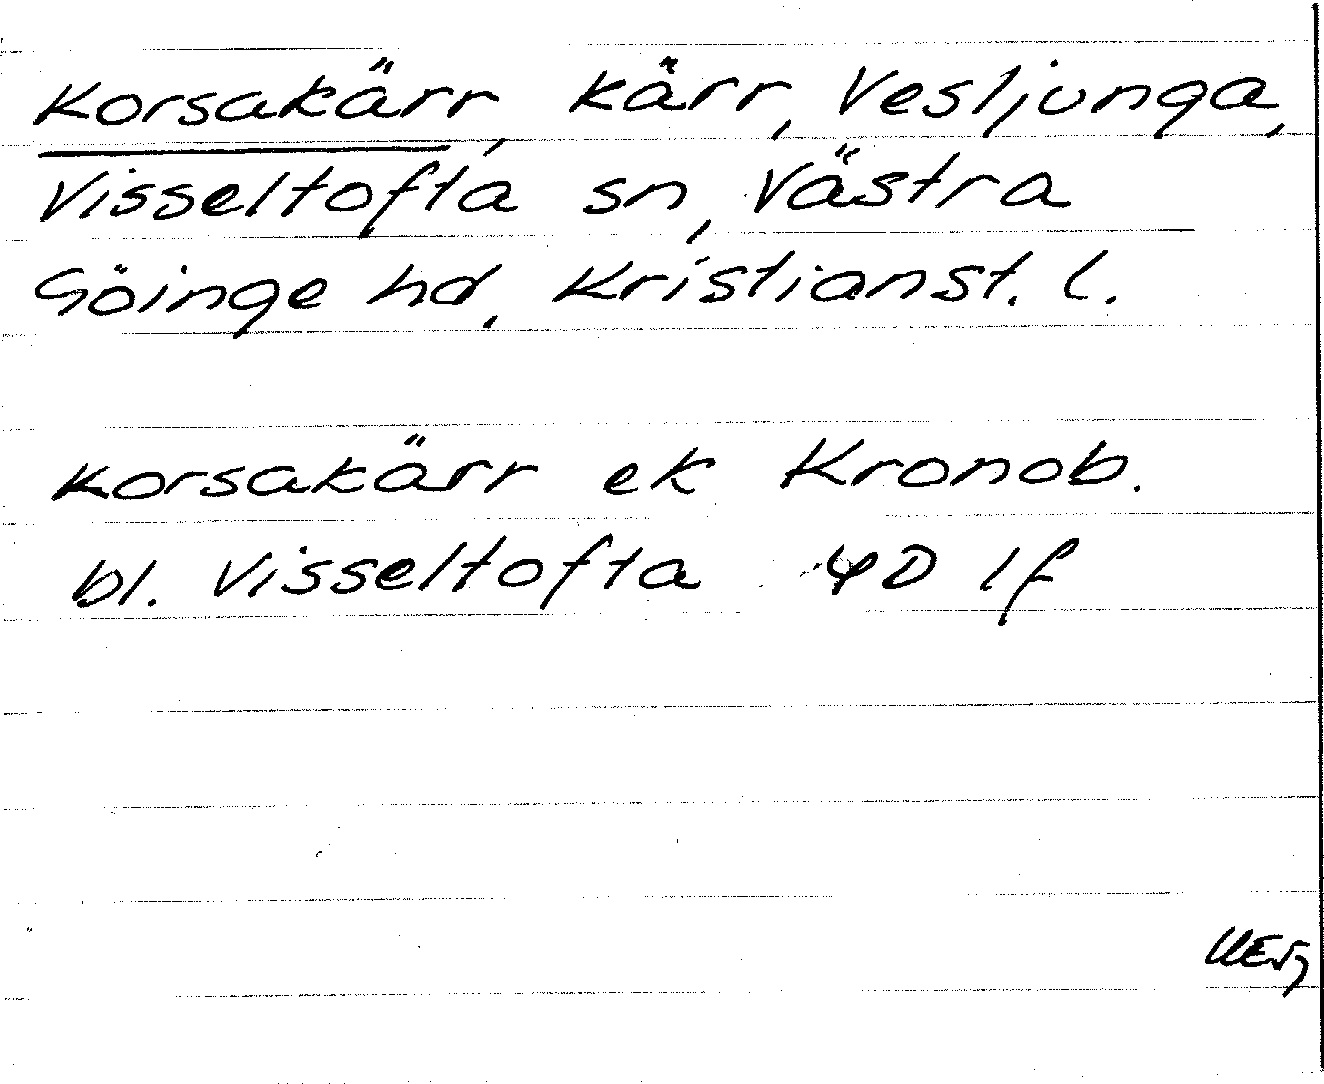 Korsakärr, kärr, Vesljunga,
Visseltofta sn, Västra
Göinge hd, Kristianst. l.
Korsakärr ek Kronob.
bl. Visseltofta 4D 1f